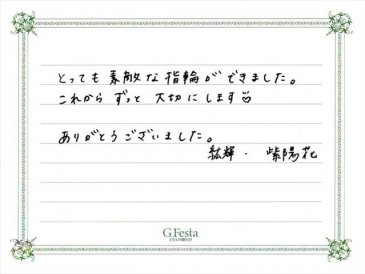 とっても素敵な指輪ができました。
これから ずっと 大切にします♡
ありがとうございました。
紘輝・紫陽花
G.Festa
DIAMOND